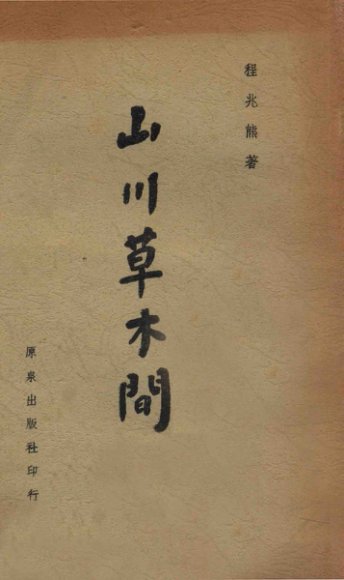 程兆熊著
山川草木間
原泉出版社印行